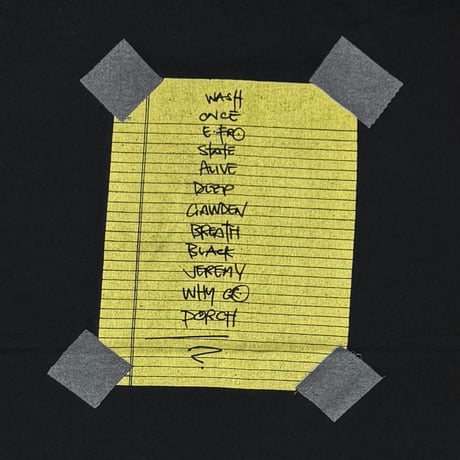 WASH
ONCE
E. FLO
STATE
ALIVE
DEEP
GAWDEN
BREATH
BLACK
JEREMY
WHY GO
PORCH
?